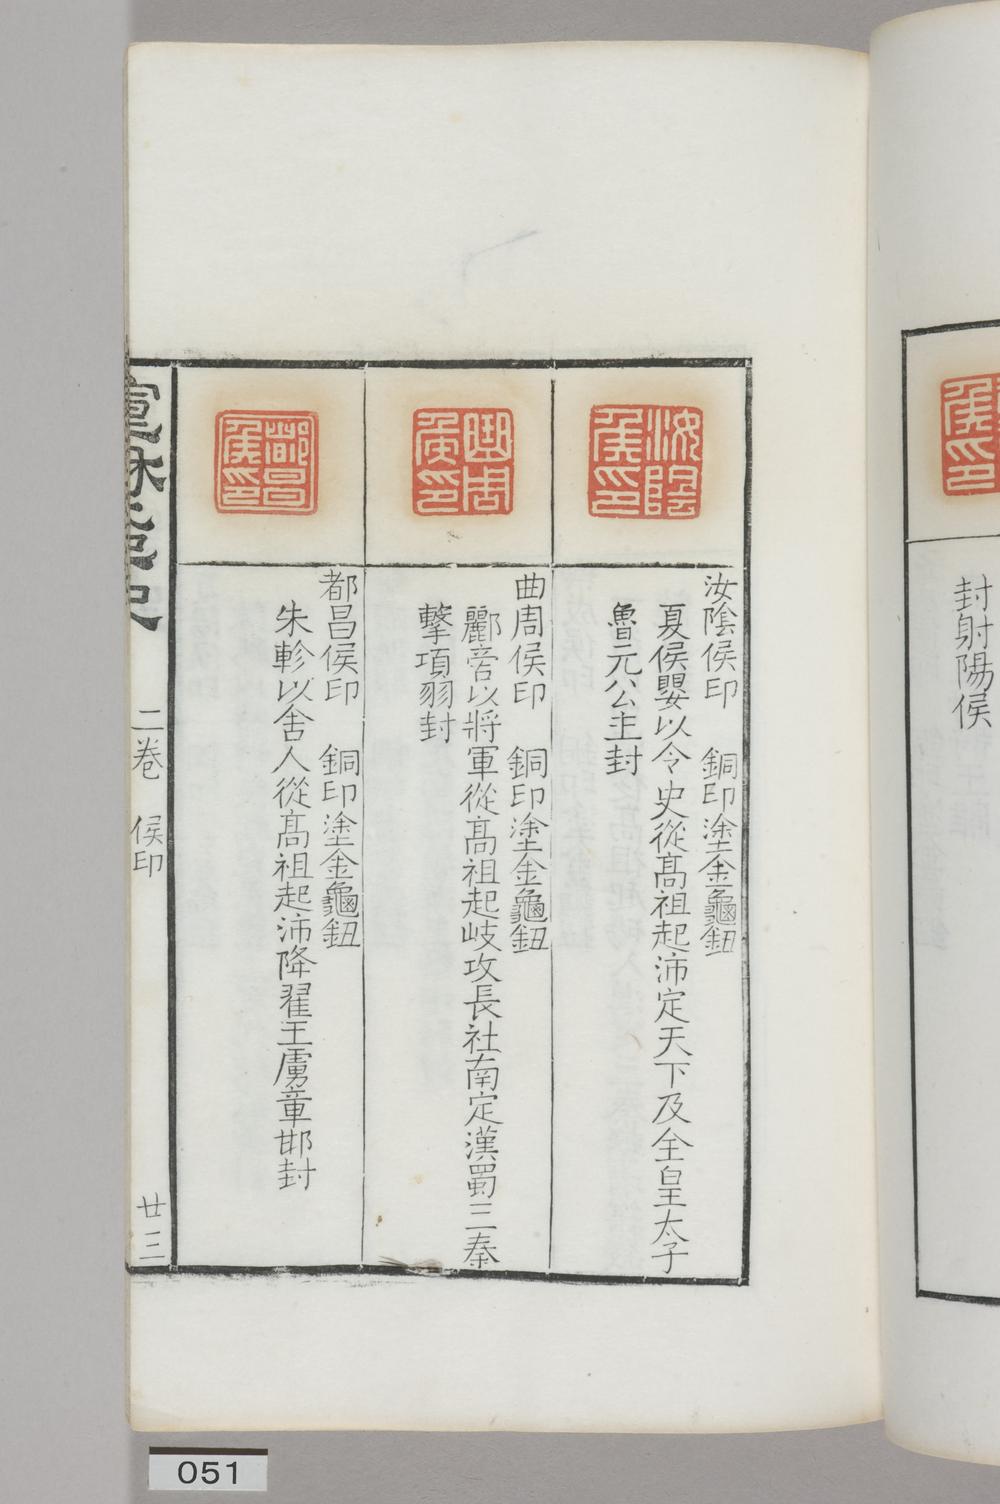 封射陽侯
汝陰侯印
汝陰侯印　銅印塗金龜鈕
夏侯嬰以令史從髙祖起沛定天下及全皇太子
魯元公主封
曲周侯印
曲周侯印　銅印塗金龜鈕
酈啇以將軍從髙祖起岐攻長社南定漢蜀三秦
擊項羽封
都昌侯印
都昌侯印　銅印塗金龜鈕
朱軫以舍人從髙祖起沛降翟王虜章邯封
宣和集古印史　二卷　侯印　廿三
051